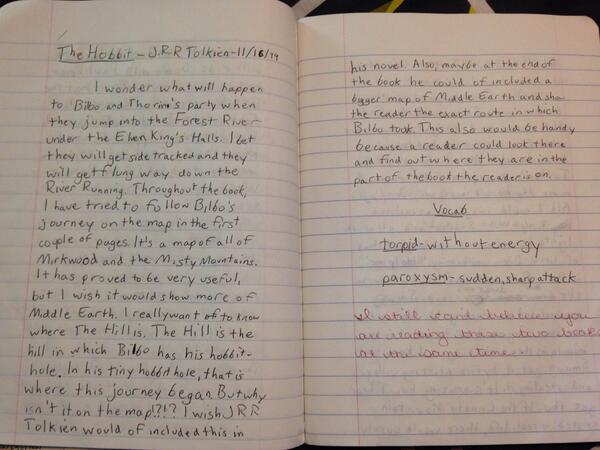 The Hobbit - J.R.R Tolkien - 11/16/14
I wonder what will happen
to Bilbo and Thorin's party when
they jump into the Forest River
under the Elven King's Halls. I bet
they will get side tracked and they
will get flung way down the
River Running. Throughout the book,
I have tried to follow Bilbo's
journey on the map in the first
couple of pages. It's a map of all of
Mirkwood and the Misty Mountains.
It has proved to be very useful,
but I wish it would show more of
Middle Earth. I really want of to know
where The Hill is. The Hill is the
hill in which Bilbo has his hobbit-
hole. In his tiny hobbit hole, that is
where this journey began. But why
isn't it on the map!?!? I wish JRR
Tolkien would of included this in
his novel. Also, maybe at the end of
the book he could of included a
bigger map of Middle Earth and show
the reader the exact route in which
Bilbo took. This also would be handy
because a reader could look there
and find out where they are in the
part of the book the reader is on.
Vocab
torpid - without energy
paroxysm - sudden, sharp attack
I still can't believe you
are reading these two books
at the same time